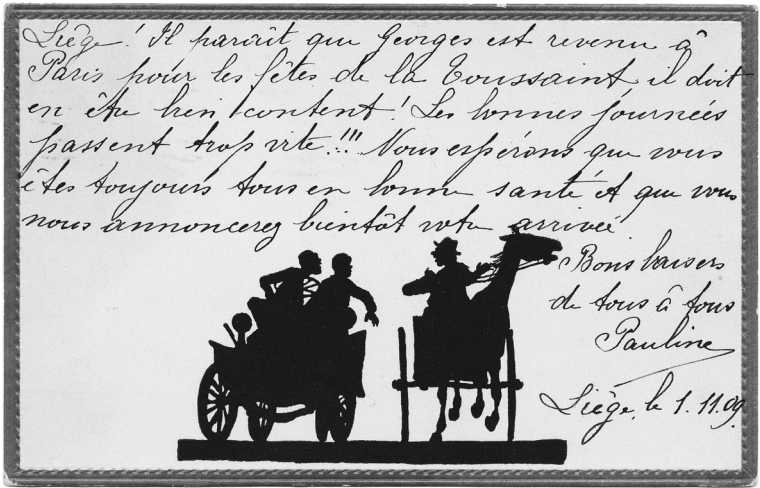 Liège! Il paraît que Georges est revenu à
Paris pour les fêtes de la Toussaint il doit
en être bien content! Les bonnes journées
passent trop vite!!! Nous espérons que vous
êtes toujours tous en bonne santé et que vous
nous annoncerez bientôt votre arrivée
Bons baisers
de tous à tous
Pauline
Liège, le 1.11.09.